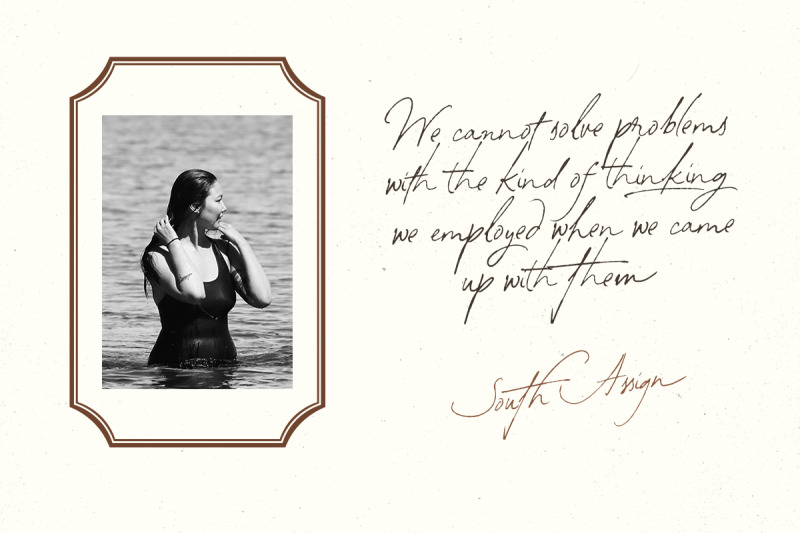 We cannot solve problems
with the kind of thinking
we employed when we came
up with them
South Assign